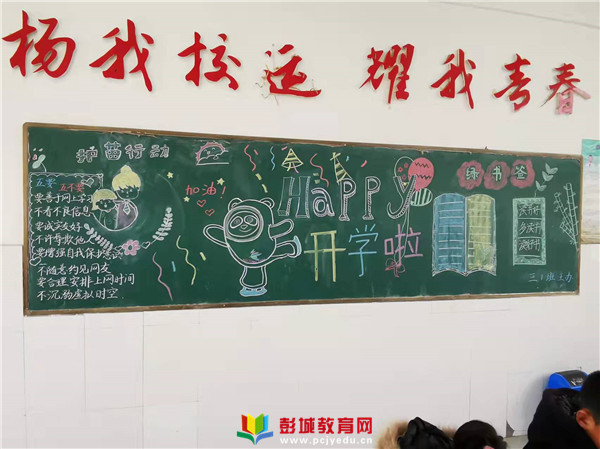 杨我校运 耀我青春
护苗行动
五要 五不要
要善于网上学
不看不良信息
要诚实友好
要增强自我保护意识
不随意约见网友
要合理安排上网时间
不沉溺虚拟时空
加油!
HAPPy
开学啦
绿书签
三1班主办
彭城教育网
www.pcjyedu.cn